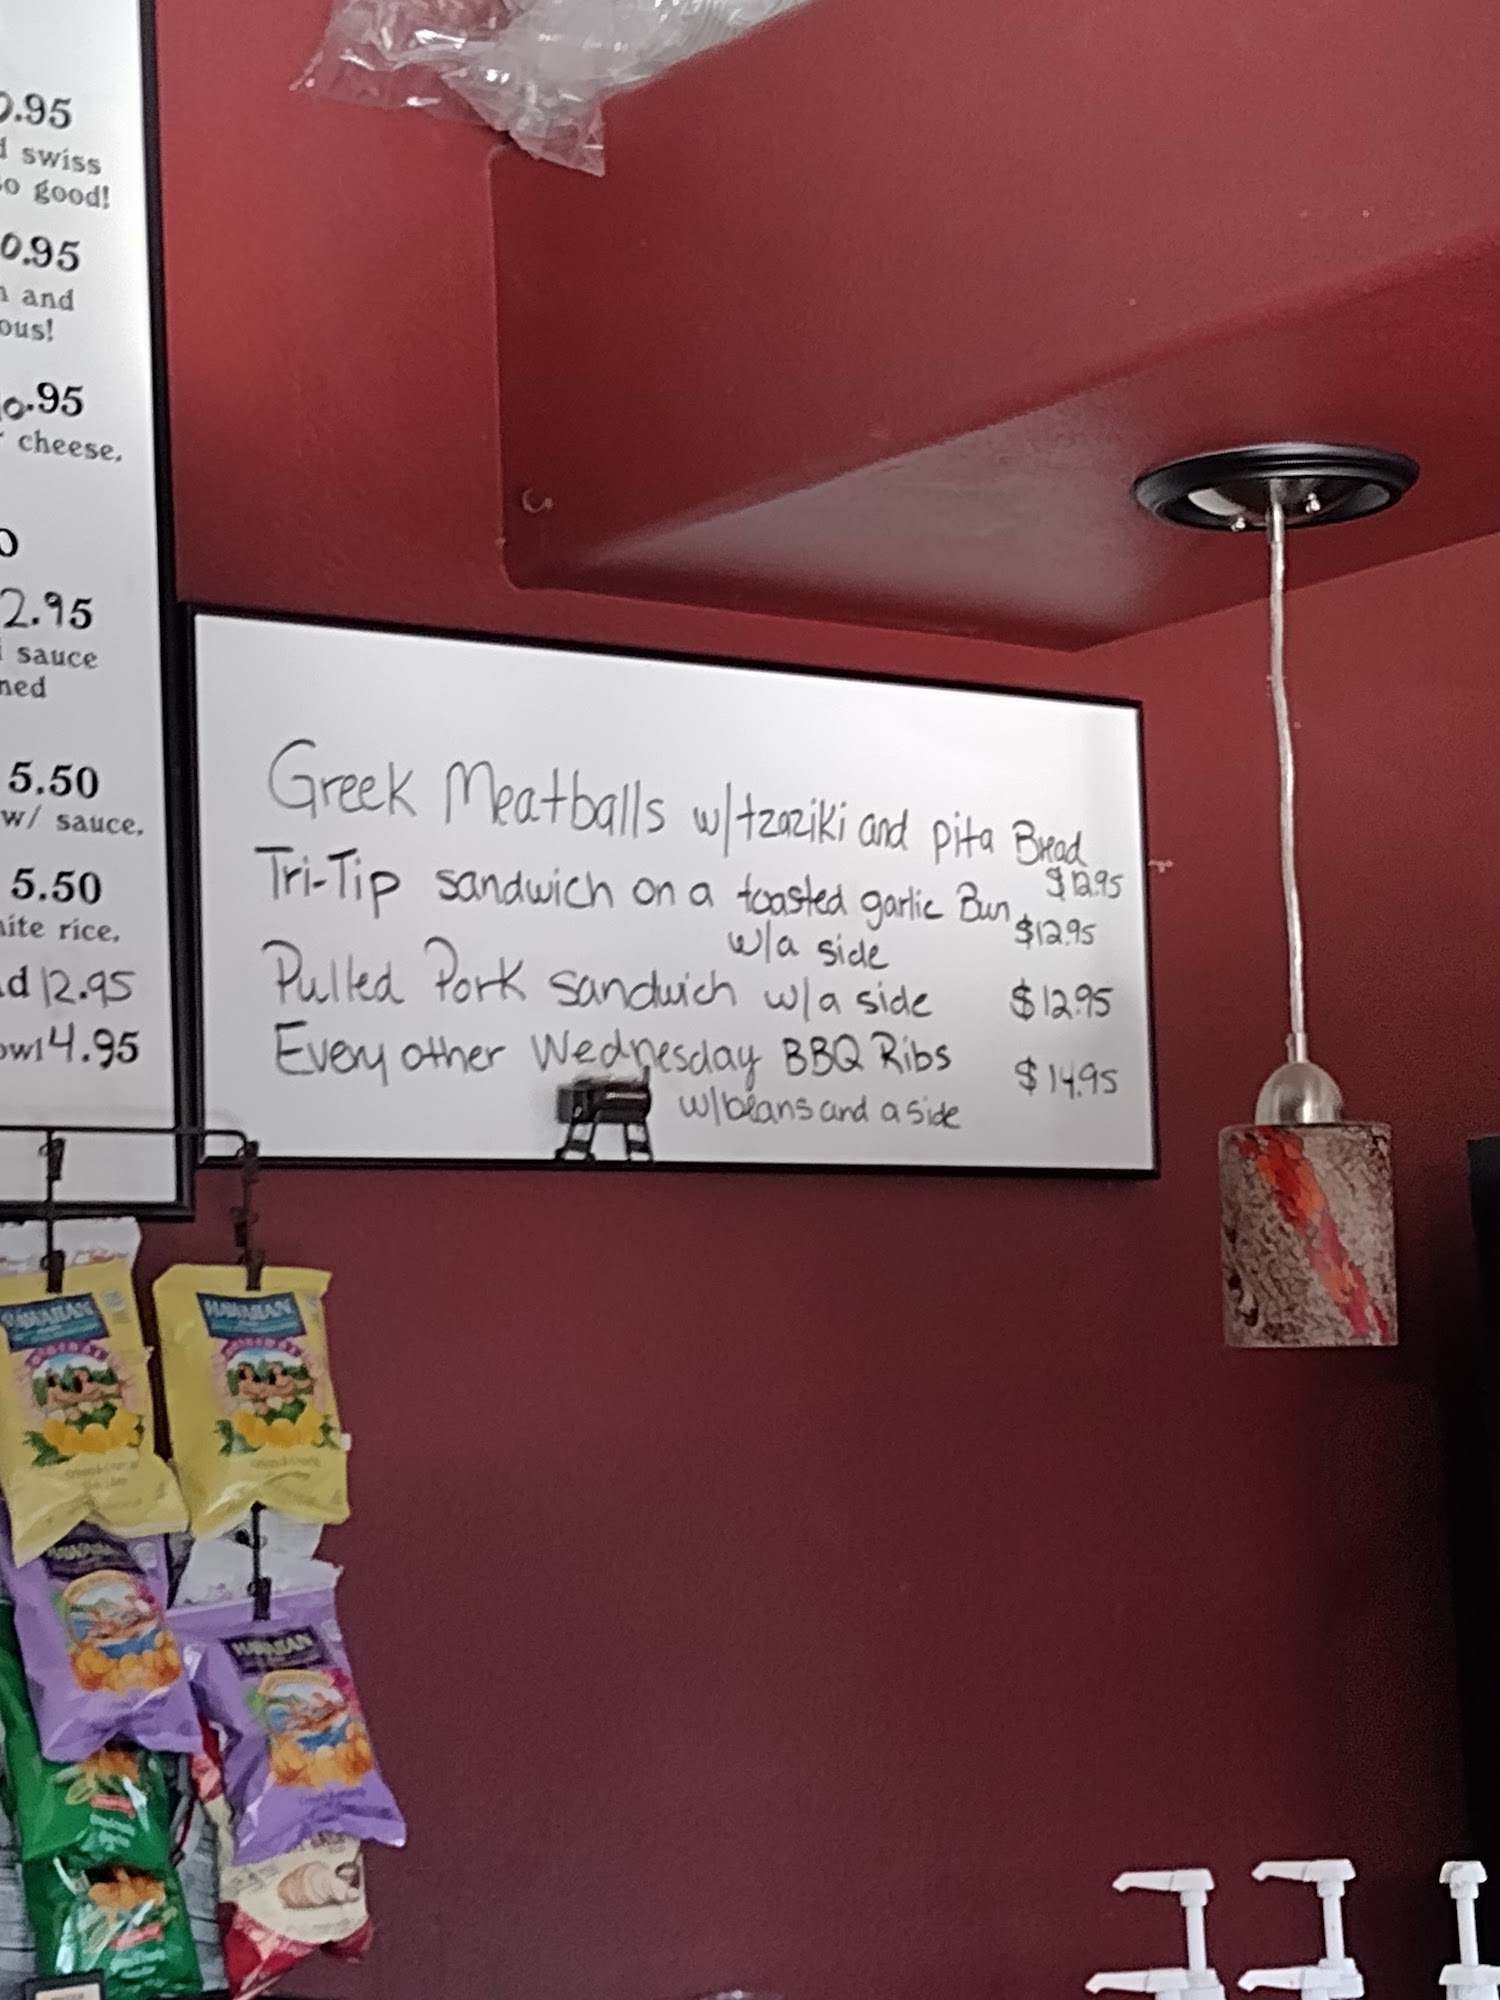 0.95
swiss
so good!
0.95
and
ous!
10.95
cheese,
0
2.95
sauce
ned
5.50
w/ sauce,
5.50
ite rice,
d 12.95
owl 4.95
Greek Meatballs w/tzaziki and pita Bread
$12.95
Tri-Tip sandwich on a toasted garlic Bun
$12.95
w/a side
Pulled Pork sandwich w/a side $12.95
Every other Wednesday BBQ Ribs $14.95
w/beans and a side
HAWAIIAN
HAWAIIAN
ORIGINAL
HAWAIIAN